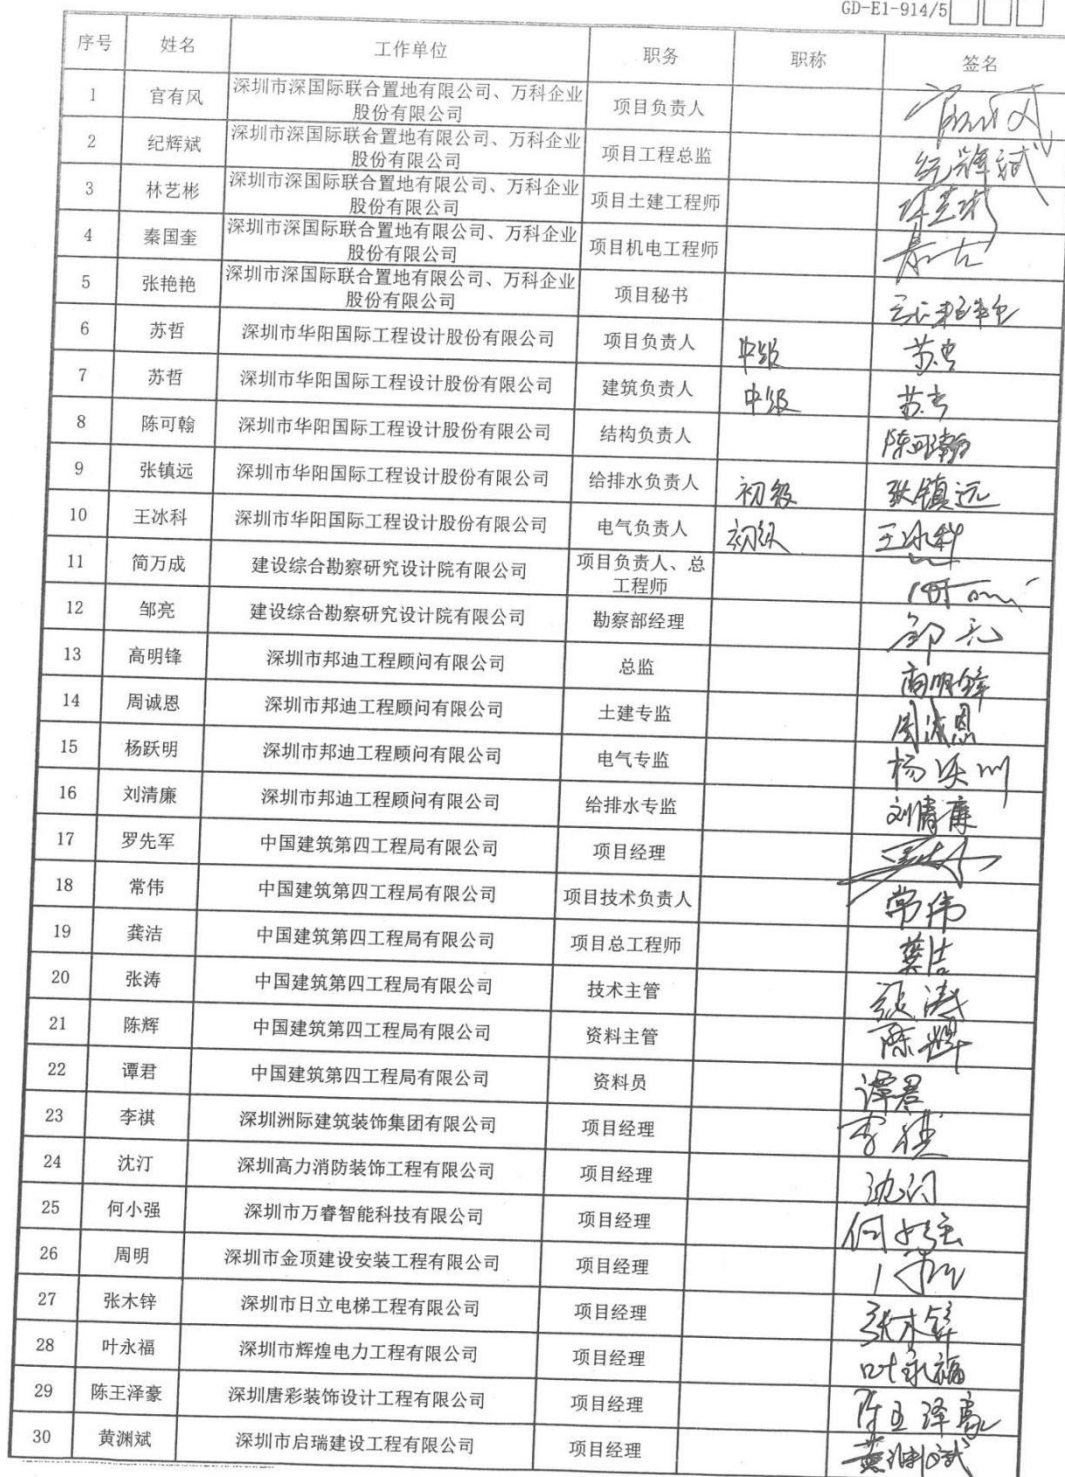 GD-E1-914/5
序号 姓名 工作单位 职务 职称 签名
1 官有风 深圳市深国际联合置地有限公司、万科企业股份有限公司 项目负责人
2 纪辉斌 深圳市深国际联合置地有限公司、万科企业股份有限公司 项目工程总监 纪辉斌
3 林艺彬 深圳市深国际联合置地有限公司、万科企业股份有限公司 项目土建工程师
4 秦国奎 深圳市深国际联合置地有限公司、万科企业股份有限公司 项目机电工程师
5 张艳艳 深圳市深国际联合置地有限公司、万科企业股份有限公司 项目秘书
6 苏哲 深圳市华阳国际工程设计股份有限公司 项目负责人 中级 苏哲
7 苏哲 深圳市华阳国际工程设计股份有限公司 建筑负责人 中级 苏哲
8 陈可翰 深圳市华阳国际工程设计股份有限公司 结构负责人 陈可翰
9 张镇远 深圳市华阳国际工程设计股份有限公司 给排水负责人 初级 张镇远
10 王冰科 深圳市华阳国际工程设计股份有限公司 电气负责人 初级 王冰科
11 简万成 建设综合勘察研究设计院有限公司 项目负责人、总工程师
12 邹亮 建设综合勘察研究设计院有限公司 勘察部经理 邹亮
13 高明锋 深圳市邦迪工程顾问有限公司 总监 高明锋
14 周诚恩 深圳市邦迪工程顾问有限公司 土建专监 周诚恩
15 杨跃明 深圳市邦迪工程顾问有限公司 电气专监 杨跃明
16 刘清廉 深圳市邦迪工程顾问有限公司 给排水专监 刘清廉
17 罗先军 中国建筑第四工程局有限公司 项目经理
18 常伟 中国建筑第四工程局有限公司 项目技术负责人 常伟
19 龚洁 中国建筑第四工程局有限公司 项目总工程师 龚洁
20 张涛 中国建筑第四工程局有限公司 技术主管 张涛
21 陈辉 中国建筑第四工程局有限公司 资料主管 陈辉
22 谭君 中国建筑第四工程局有限公司 资料员 谭君
23 李祺 深圳洲际建筑装饰集团有限公司 项目经理 李祺
24 沈汀 深圳高力消防装饰工程有限公司 项目经理 沈汀
25 何小强 深圳市万睿智能科技有限公司 项目经理 何小强
26 周明 深圳市金顶建设安装工程有限公司 项目经理
27 张木锌 深圳市日立电梯工程有限公司 项目经理 张木锌
28 叶永福 深圳市辉煌电力工程有限公司 项目经理 叶永福
29 陈王泽豪 深圳唐彩装饰设计工程有限公司 项目经理 陈王泽豪
30 黄渊斌 深圳市启瑞建设工程有限公司 项目经理 黄渊斌